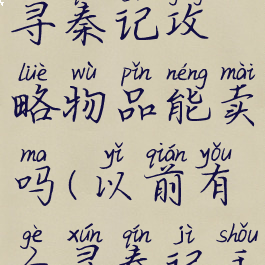 寻秦记攻
lüè wù pǐn néng mài
略物品能卖
ma yǐ qián yǒu
吗(以前有
gè xún qín jì shǒu